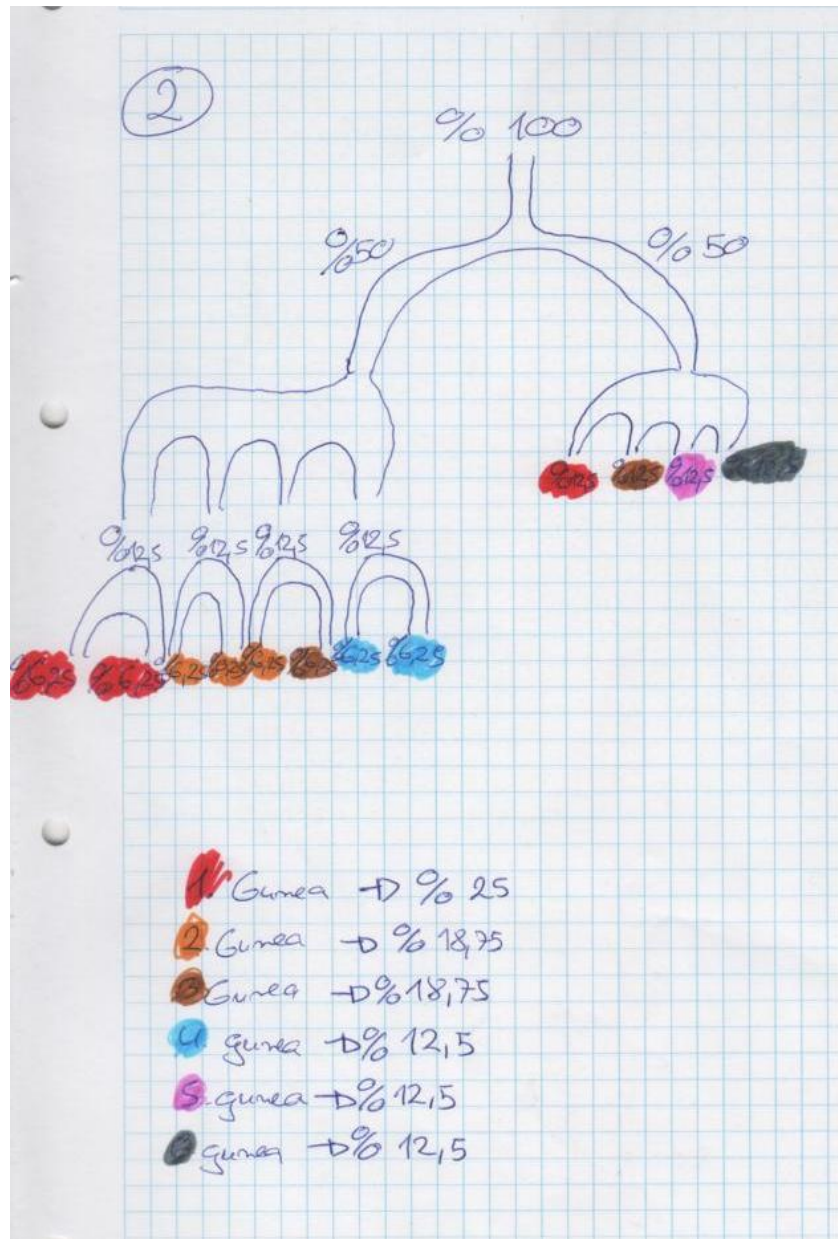 2
% 100
%50 % 50
%12,5 %12,5 %12,5
%12,5 %12,5 %12,5 %12,5
%6,25 %6,25 %6,25 %6,25 %6,25 %6,25 %6,25 %6,25
1. Gunea → % 25
2. Gunea → % 18,75
3 Gunea → % 18,75
4. gunea → % 12,5
5. gunea → % 12,5
gunea → % 12,5